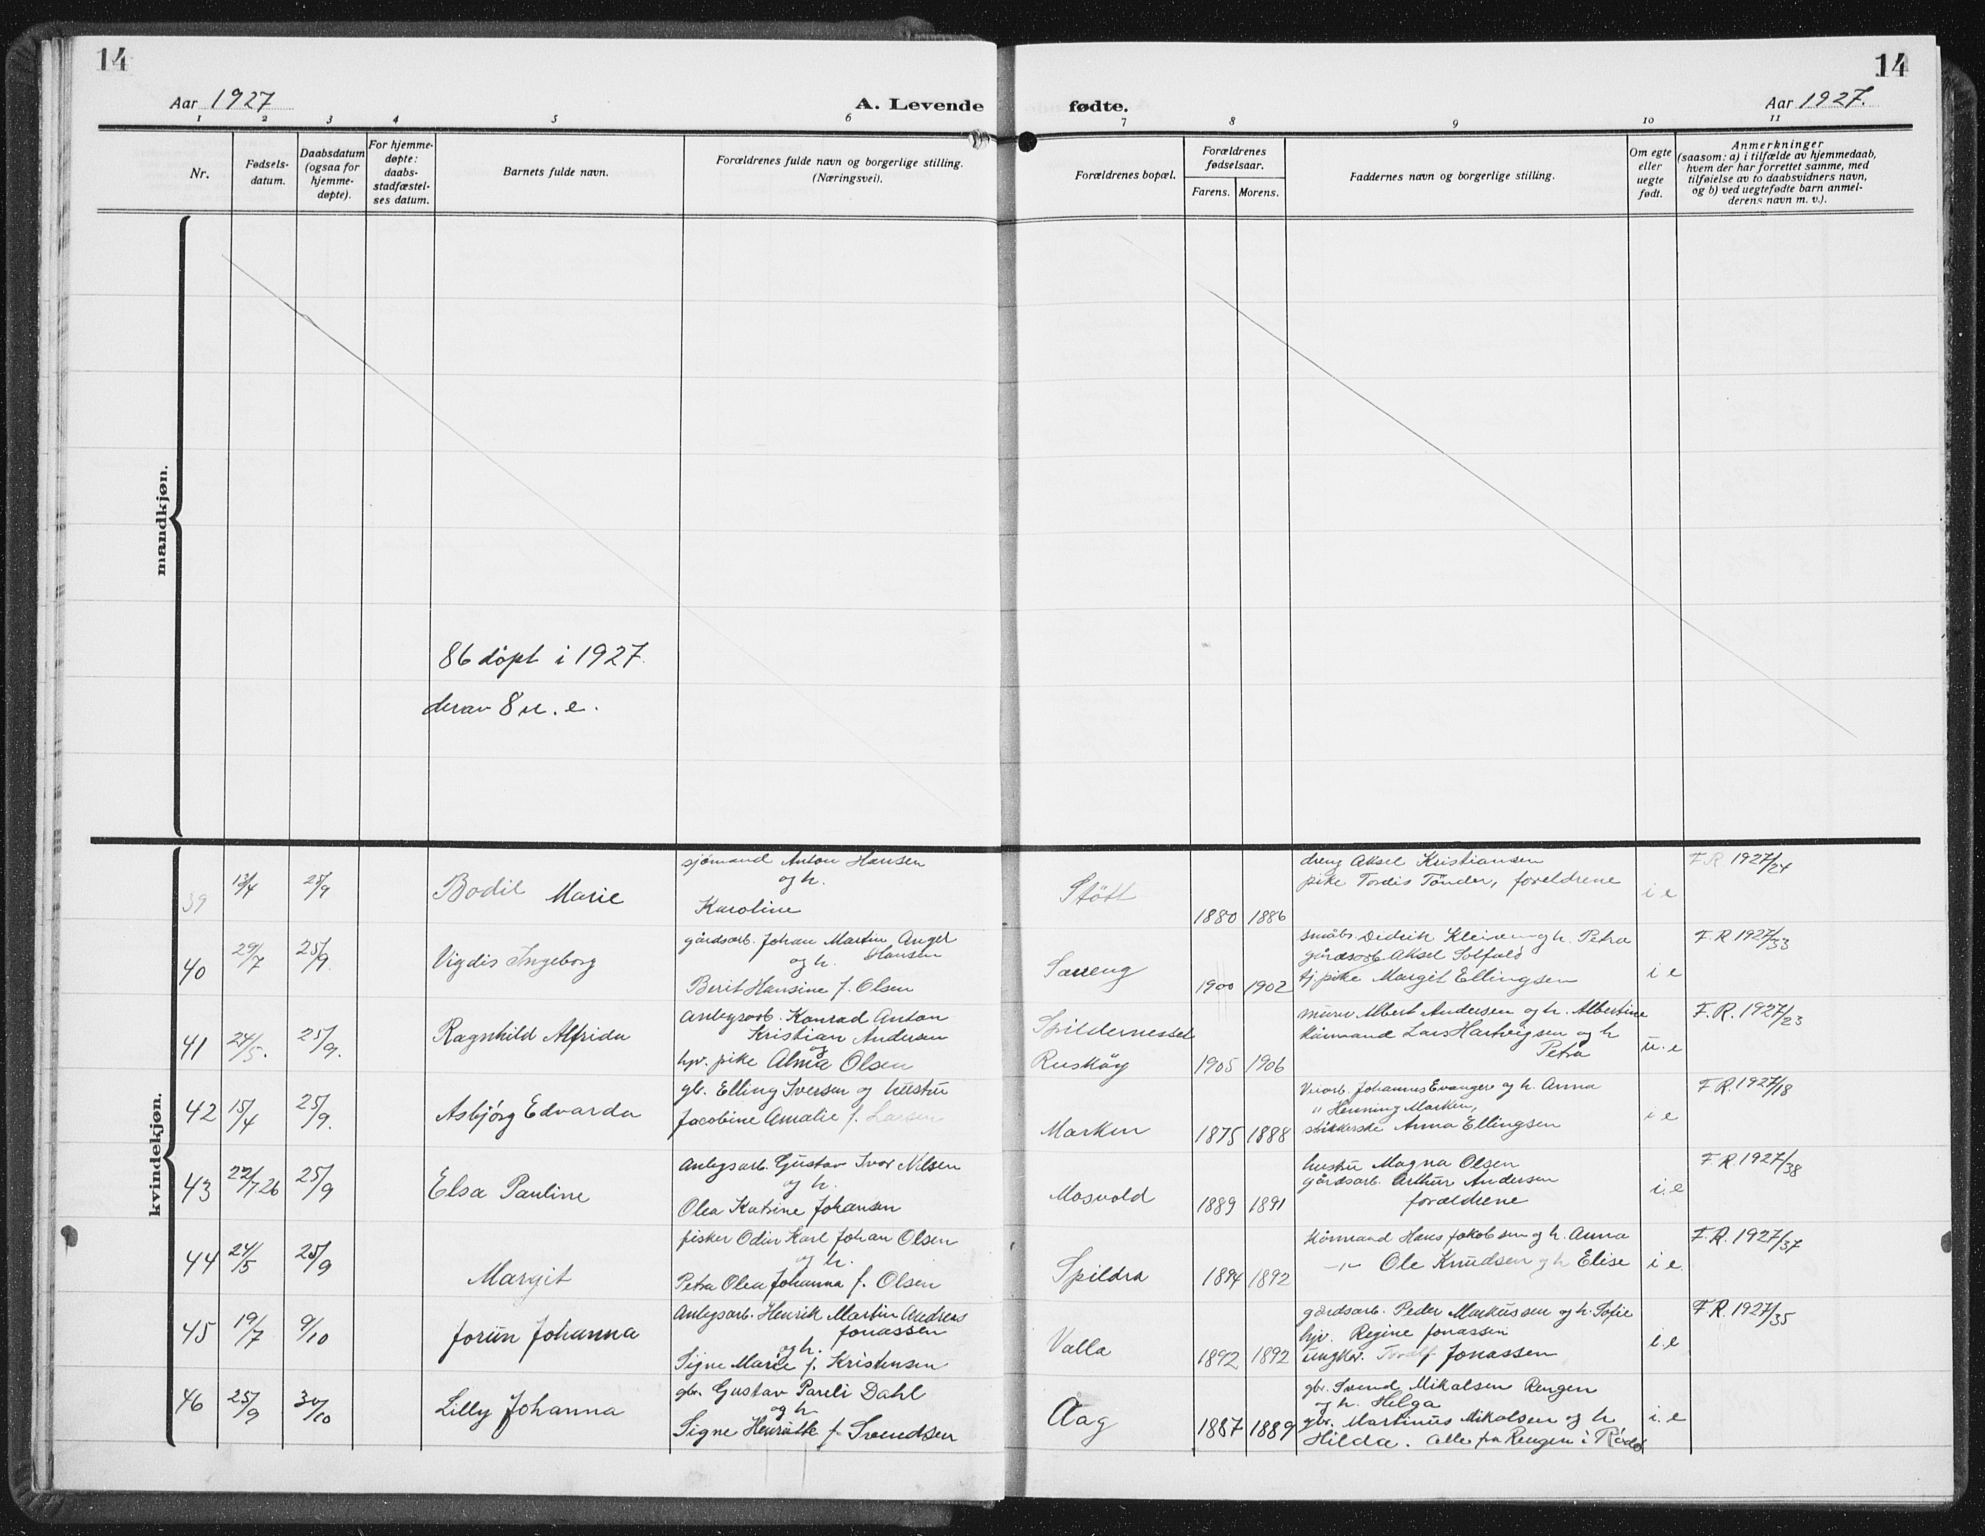 14
14
Aar 1927
A. Levende fødte.
Aar 1927.
1 2 3 4 5 6 7 8 9 10 11
Nr.
Fødsels-
datum.
Daabsdatum
(ogsaa for
hjemme-
døpte).
For hjemme-
døpte:
daabs-
stadfæstel-
ses datum.
Barnets fulde navn.
Forældrenes fulde navn og borgerlige stilling.
(Næringsvei).
Forældrenes bopæl.
Forældrenes
fødselsaar.
Farens. Morens.
Faddernes navn og borgerlige stilling.
Om egte
eller
uegte
født.
Anmerkninger
(saasom: a) i tilfælde av hjemmedaab,
hvem der har forrettet samme, med
tilføielse av to daabsvidners navn,
og b) ved uegtefødte barn anmel-
derens navn m. v.).
mandkjøn.
86 döpt i 1927.
derav 8 u. e.
kvindekjøn.
39
13/4
25/9
Bodil Marie
sjömand Anton Hansen
og h.
Karoline
Stött
1880 1886
dreng Aksel Kristiansen
pike Tordis Tönder, foreldrene
i e
F.R. 1927/24
40
29/7
25/9.
Vigdis Ingeborg
gårdsarb. Johan Martin Angel
Hansen
og h.
Berit Hansine f. Olsen
1900 1902
småbr. Didrik Kleiven og h. Petra
gårdsarb. Aksel Solfald
tj. pike Margit Ellingsen
i e
F.R 1927/33
41
24/5.
25/9.
Ragnhild Alfrida
Anlegsarb. Konrad Anton
Kristian Andersen
og
hjv. pike Alma Olsen
Spildernesset
Ruskög
1905 1906
murer Albert Andersen og h. Albertine
kårmand Lars Hartvigsen og h
Petra
u. e
F.R. 1927/23
42
15/4
25/9.
Asbjörg Edvarda
gb. Elling Iversen og hustru
Jacobine Amalie f. Larsen
Marken
1875 1888
Veiarb. Johannes Evanger og h. Anna
" Henning Marken,
strikkerske Anna Ellingsen
i e
F.R. 1927/18
43
22/7 26
25/9
Elsa Pauline
Anlegsarb. Gustav Ivar Nilsen
og h.
Olea Katrine Johansen
Mosvold
1889 1891
hustru Magna Olsen
gårdsarb. Arthur Andersen
forældrene
i. e
F.R. 1927/38
44
24/5
25/9
Margit
fisker Odin Karl Johan Olsen
og h.
Petra Olea Johanna f. Olsen
Spildra
1894 1892
kårmand Hans Jakobsen og h. Anna
-"- Ole Knudsen og h Elise
i e.
F.R. 1927/37
45
19/7
9/10
Jorun Johanna
Anlegsarb. Henrik Martin Andreas
Jonassen
og h.
Signe Marie f. Kristensen
Valla
1892 1892
gårdsarb. Peder Markussen og h. Sofie
hjv. Regine Jonassen
ungkr. Toralf Jonassen
i. e
F.R. 1927/35
46
25/9
30/10
Lilly Johanna
gbr. Gustav Pareli Dahl
og h
Signe Henriette f Svendsen
Aag
1887 1889
gbr. Svend Mikalsen Rengen
og h. Helga
gbr. Martinus Mikalsen og h
Hilda. alle fra Rengen i Rödö
i. e